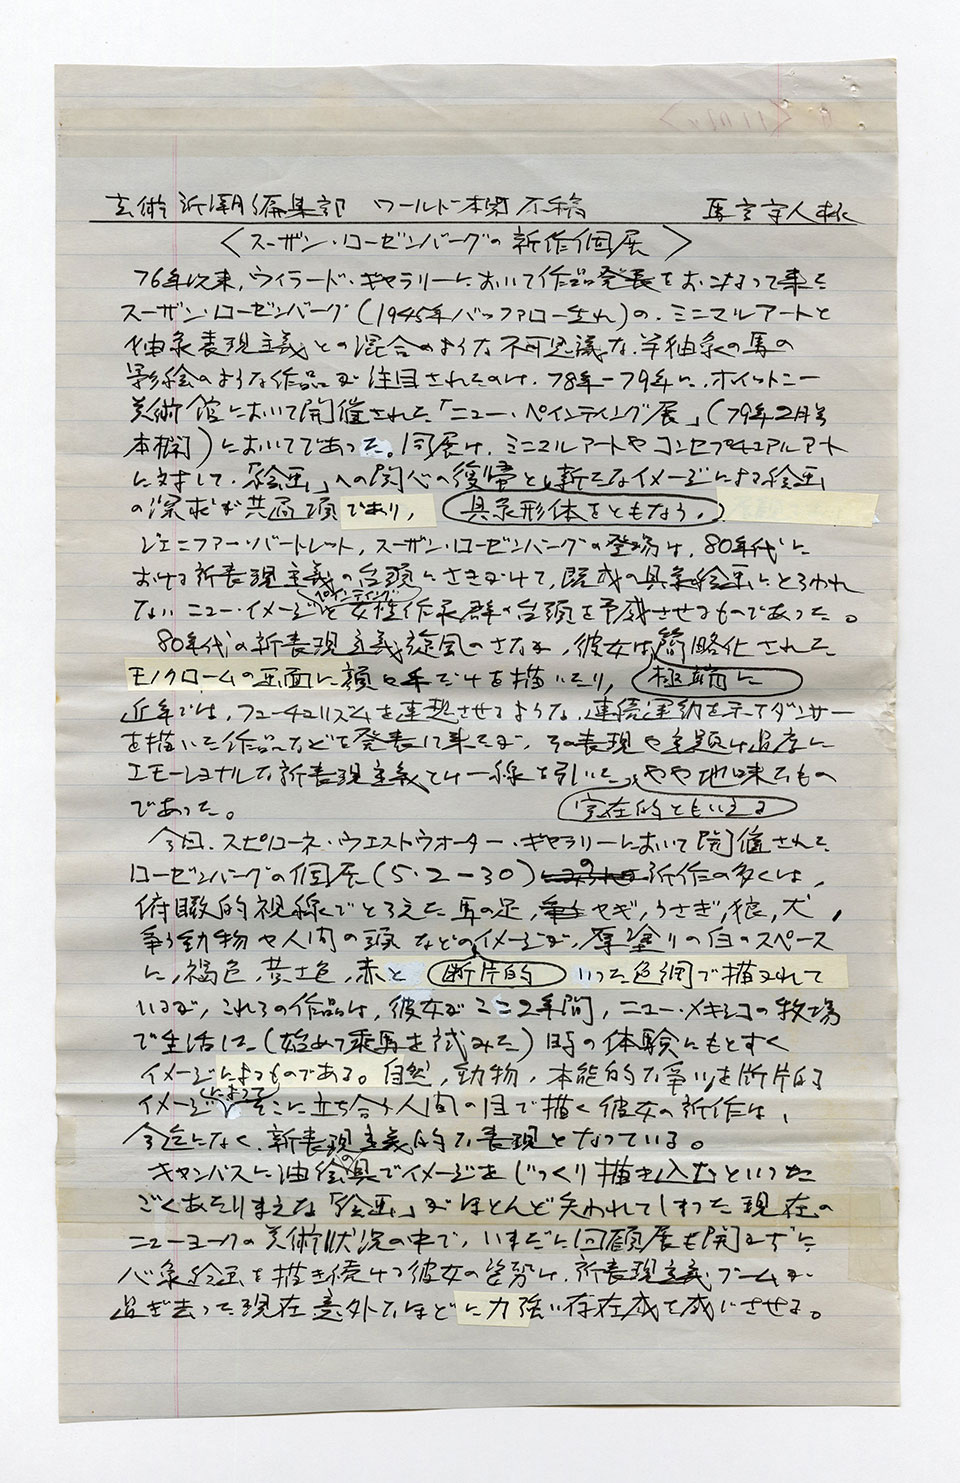 芸術新潮編集部 ワールド欄原稿
〈スーザン・ローゼンバーグの新作個展〉
76年以来、ウィラード・ギャラリーにおいて作品発表をおこなって来た
スーザン・ローゼンバーグ(1945年バッファロー生れ)の、ミニマルアートと
抽象表現主義との混合のような不可思議な、半抽象の馬の
影絵のような作品が注目されたのは、78年–79年に、ホイットニー
美術館において開催された「ニュー・ペインティング展」(79年2月号
本欄)においてであった。同展は、ミニマルアートやコンセプチュアルアート
に対して、「絵画」への関心の復帰と、新たなイメージによる絵画
の深求が共通項であり、具象形体をともなう、
ジェニファー・バートレット、スーザン・ローゼンバーグの登場は、80年代に
おける新表現主義の台頭にさきがけて、既成の具象絵画にとらわれ
ペインティング
ないニュー・イメージと女性作家群の台頭を予感させるものであった。
80年代の新表現主義旋風のさなか、彼女は簡略化された
モノクロームの画面に顔と手だけを描いたり、極端に
近年では、フューチュリズムを連想させるような、連続運動を示すダンサー
を描いた作品などを発表して来たが、その表現や主題は過度に
エモーショナルな新表現主義とは一線を引いた、やや地味なもの
であった。 内在的ともいえる
今回、スペローネ・ウエストウォーター・ギャラリーにおいて開催された
ローゼンバーグの個展(5・2–30)の新作の多くは、
俯瞰的視線でとらえた馬の足、ヤギ、うさぎ、狼、犬、
争う動物や人間の頭などのイメージが、厚塗りの白のスペース
に、褐色、黄土色、赤と 断片的 いった色調で描かれて
いるが、これらの作品は、彼女がここ2年間、ニュー・メキシコの牧場
で生活した(始めて乗馬を試みた)時の体験にもとずく
イメージによるものである。自然、動物、本能的な争いを断片的
によって
イメージ そこに立ち合う人間の目で描く彼女の新作は、
今迄になく、新表現主義的な表現となっている。
の
キャンバスに油絵具でイメージをじっくり描き込むといった
ごくあたりまえな「絵画」がほとんど失われてしまった現在の
ニューヨークの美術状況の中で、いまだに回顧展も開かずに
心象絵画を描き続ける彼女の姿勢は、新表現主義ブームが
過ぎ去った現在意外なほどに力強い存在感を感じさせる。